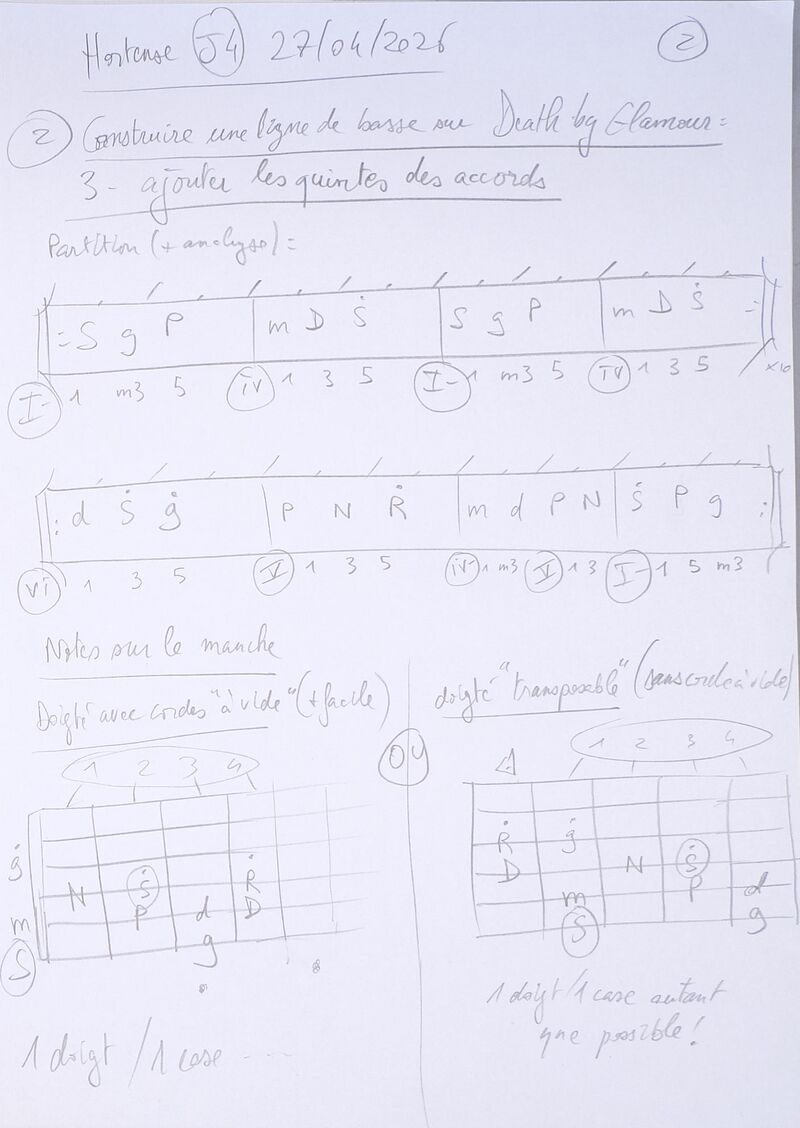 Hortense J4 27/04/2026 2
2 Construire une ligne de basse sur Death by Glamour :
3 - ajouter les quintes des accords
Partition (+ analyse) :
: S g P | m D Ṡ | S g P | m D Ṡ :
I- 1 m3 5 IV 1 3 5 I- 1 m3 5 IV 1 3 5 x10
: d Ṡ ġ | P N Ṙ | m d P N | Ṡ P g :
VI 1 3 5 V 1 3 5 IV- 1 m3 V 1 3 I- 1 5 m3
Notes sur le manche
Doigté avec cordes "à vide" (+ facile)
OU
doigté "transposable" (sans corde à vide)
1 2 3 4
ġ
N Ṡ Ṙ
m P d D
S g
1 doigt / 1 case ....
1 2 3 4
Ṙ ġ
D N Ṡ
m P d
S g
1 doigt / 1 case autant
que possible !